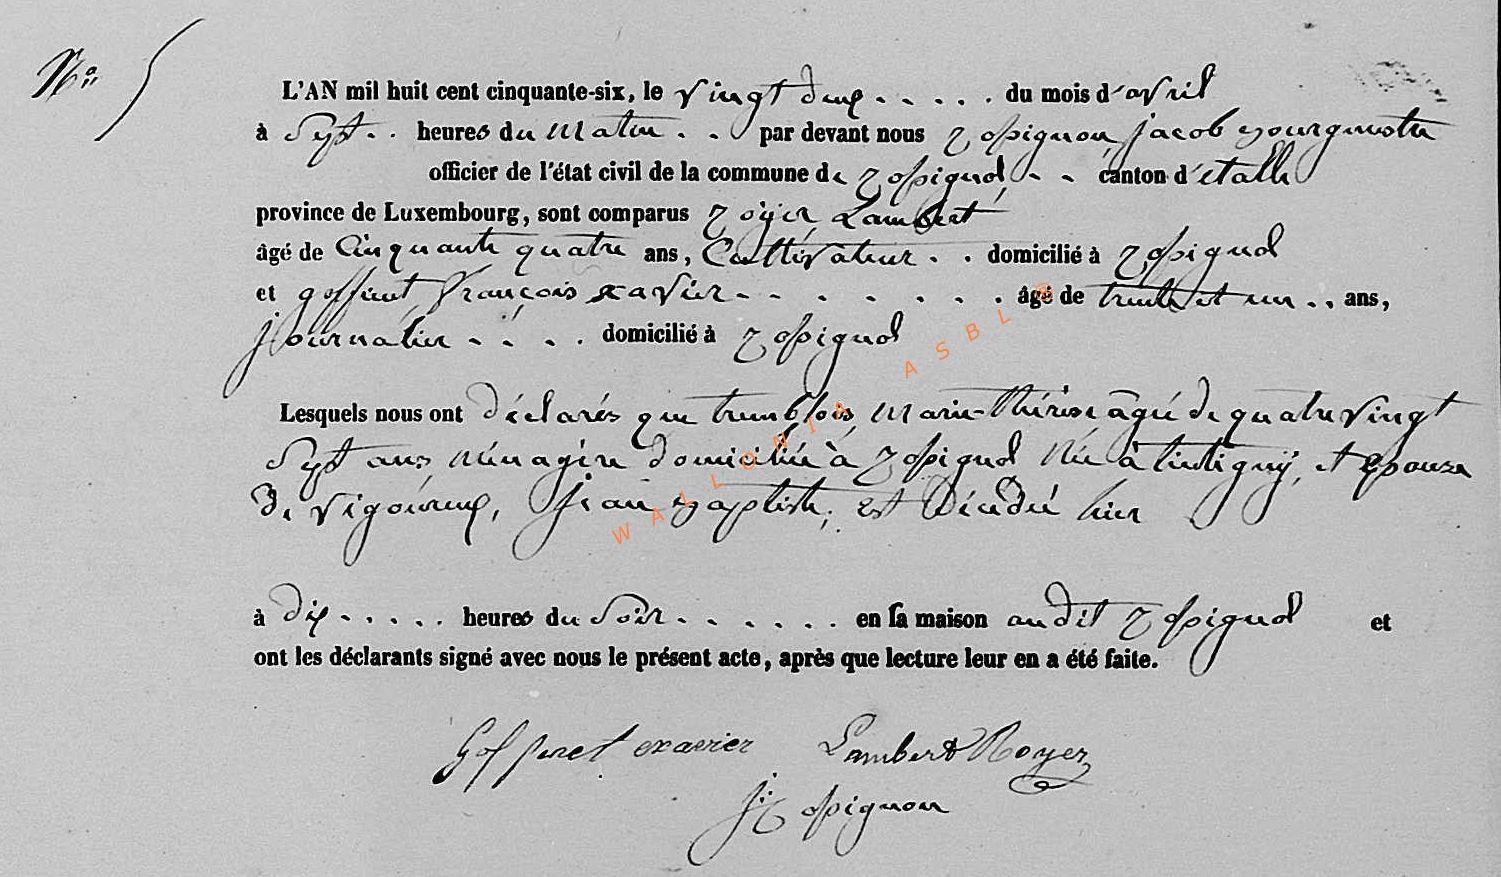 N° 5
L'AN mil huit cent cinquante-six, le vingt deux . . . . . du mois d'avril
à sept . . heures du matin . . par devant nous Rossignon, jacob Bourgmestre
officier de l'état civil de la commune de Rossignol, . . canton d'etalle
province de Luxembourg, sont comparus Royer Lambert
âgé de Cinquante quatre ans, Cultivateur . . domicilié à Rossignol
et goffinet françois xavier . . . . . . . âgé de trente et un . . ans,
journalier . . . . domicilié à Rossignol
Lesquels nous ont déclarés que tremblois, Marie-thérèse âgé de quatre vingt
Sept ans ménagère domiciliée à Rossignol Née à tintigny, et epouse
de vigoureux, jean Baptiste, est Décédé hier
à dix . . . . . heures du soir . . . . . . en sa maison audit Rossignol et
ont les déclarants signé avec nous le présent acte, après que lecture leur en a été faite.
exavier Lambert Royer
j: Rossignon
WALLONIA ASBL ©